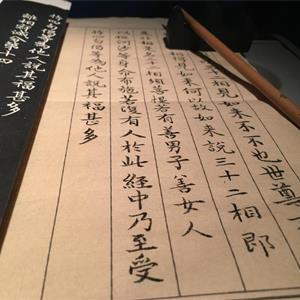 二相見如来不不也世尊
得見如来何以故如来説三十二相即
是非相是名三十二相須菩提若有善男子善女人
以恒河沙等身命布施若復有人於此經中乃至受
持四句偈等為他人説其福甚多
持四句偈等為他人説其福甚多
離相寂滅分第十四